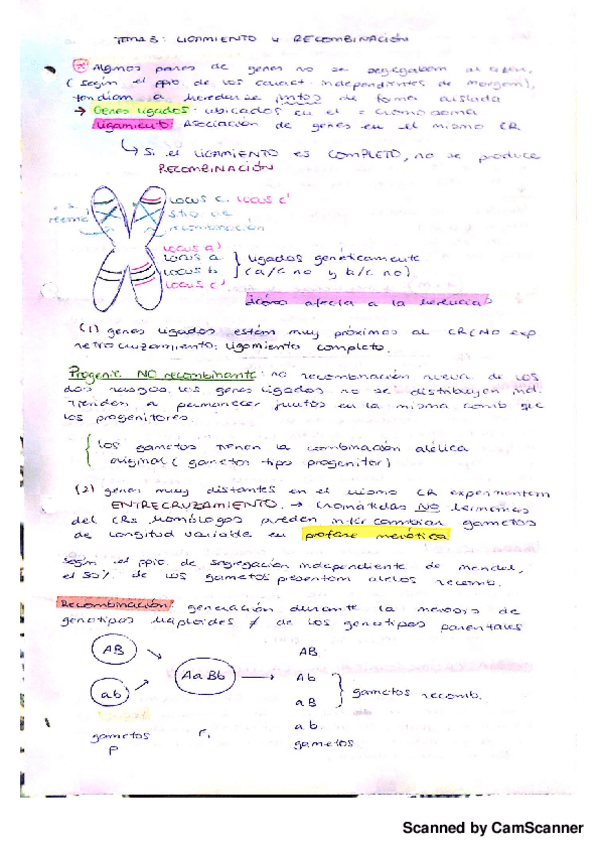 TEMA 3: LIGAMIENTO Y RECOMBINACIÓN
Algunos pares de genes no se segregaban al
(según el ppio. de los caract. independientes de
tendían a heredarse juntos de forma aislada
→ Genes ligados: ubicados en el = cromosoma
Ligamiento: Asociación de genes en el mismo CR
↳ Si el LIGAMIENTO es COMPLETO, no se produce
RECOMBINACIÓN
Locus c. Locus c'
sitio de
recombinación
Locus a'
Locus a
Locus b
Locus c'
} ligados genéticamente
(a/c no y b/c no)
¿cómo afecta a la herencia?
(1) genes ligados están muy próximos al CR (NO exp
retrocruzamiento: ligamiento completo.
Progenie NO recombinante: no recombinación nueva de los
dos rasgos. los genes ligados no se distribuyen ind.
Tienden a permanecer juntos en la misma comb que
los progenitores.
{ los gametos tienen la combinación alélica
original (gametos tipo progenitor)
(2) genes muy distantes en el mismo CR experimentan
ENTRECRUZAMIENTO. → cromátidas NO hermanas
del CRs homólogos pueden intercambiar gametos
de longitud variable en profase meiótica
Según el ppio. de segregación independiente de Mendel,
el 50% de los gametos presentan alelos recomb.
Recombinación: generación durante la meiosis de
genotipos haploides ≠ de los genotipos parentales
AB
ab
AaBb
AB
Ab
aB
ab
} gametos recomb.
gametos
P
F₁
gametos
Scanned by CamScanner